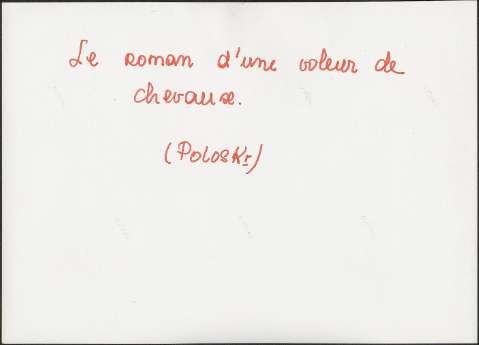 Le roman d'une voleur de
chevaux.
(Poloskr)